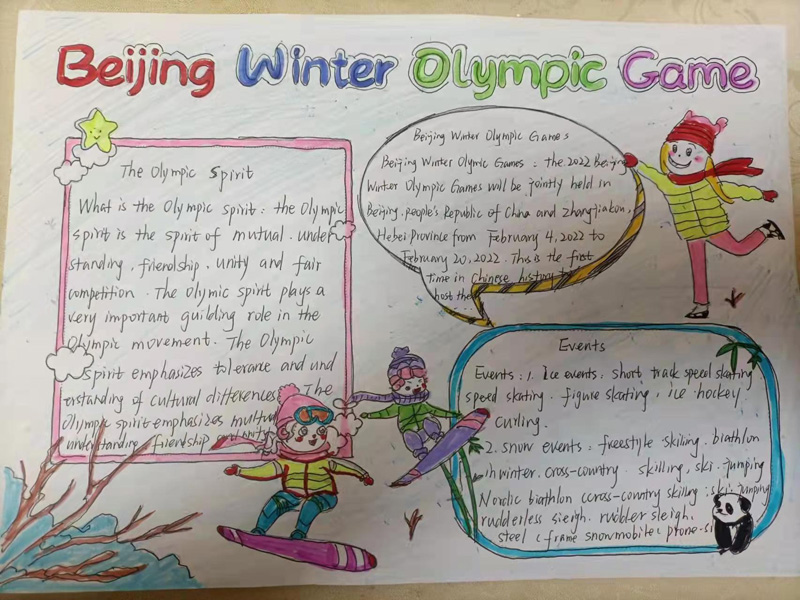 Beijing Winter Olympic Game
The Olympic Spirit
What is the Olympic spirit: the Olympic
spirit is the spirit of mutual. under
standing, friendship. unity and fair
competition. The Olymic spirit plays a
very important guilding role in the
Olympic movement. The Olympic
spirit emphasizes tolerance and und
erstanding of cultural differences. The
Olympic spirit emphasizes
understanding, friendship and unity
Beijing Winter Olympic Games
Beijing Winter Olymic Games: the 2022 Beijing
Winter Olympic Games will be jointly held in
Beijing. people's Republic of China and Zhangjiakou,
Hebei Province from February 4, 2022 to
February 20, 2022. This is the first
time in Chinese history to
host the
Events
Events: 1. Ice events: short track speed skating
speed skating. figure skating, ice hockey.
curling.
2. snow events: freestyle skiling. biathlon
in winter. cross-country. skilling, ski. jumping
Nordic biathlon (cross-country skiling: ski jumping
rudderless sleigh. rubber sleigh.
steel (frame snowmobile (prone-sl